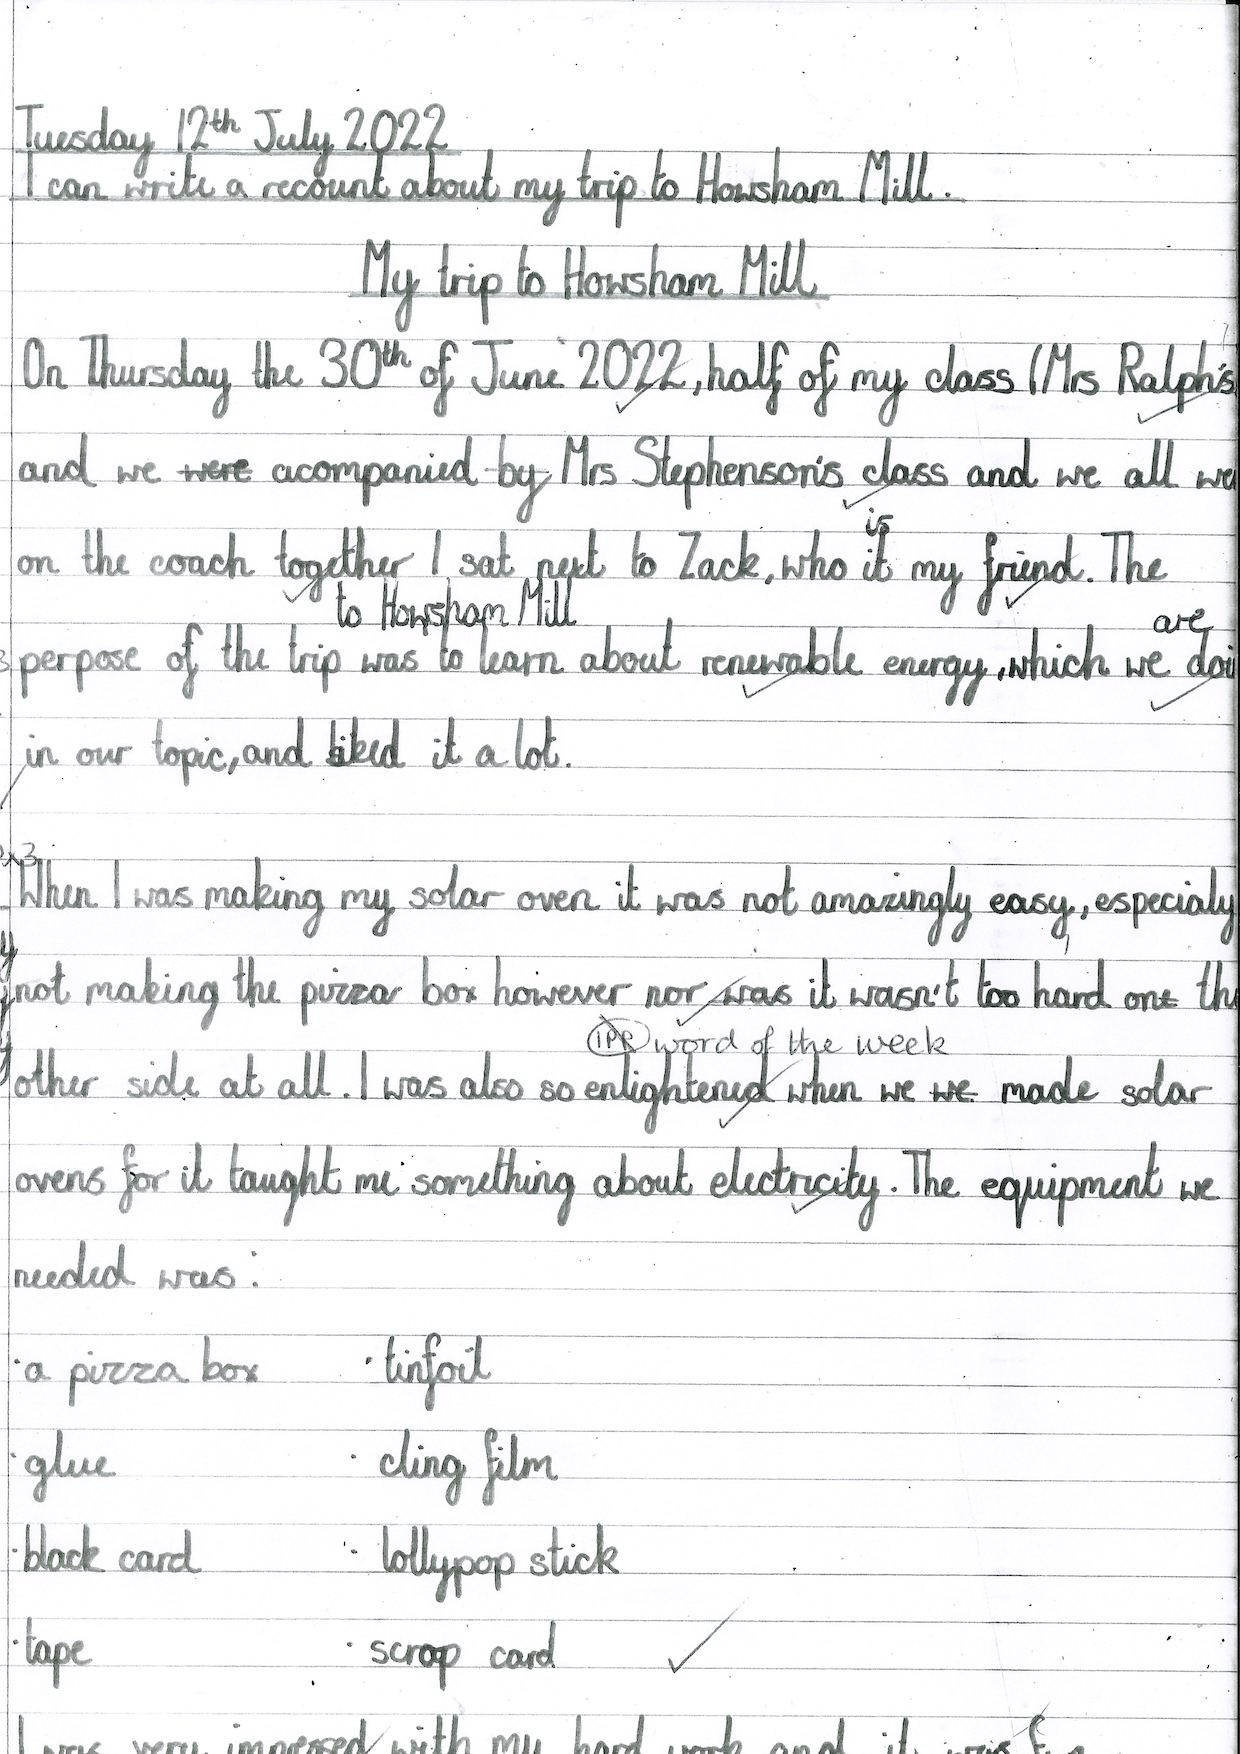 Tuesday 12th July 2022
I can write a recount about my trip to Howsham Mill.
My trip to Howsham Mill
On Thursday the 30th of June 2022, half of my class (Mrs Ralph's
and we were acompanied by Mrs Stephenson's class and we all we
is
on the coach together I sat next to Zack, who it my friend. The
to Howsham Mill
are
perpose of the trip was to learn about renewable energy, which we doi
in our topic, and liked it a lot.
When I was making my solar oven it was not amazingly easy, especialy
not making the pizza box however nor was it wasn't too hard one the
IPR word of the week
other side at all. I was also so enlightened when we we made solar
ovens for it taught me something about electricity. The equipment we
needed was:
·a pizza box ·tinfoil
·glue · cling film
·black card · lollypop stick
·tape · scrap card
I was very impressed with my hard work and it was